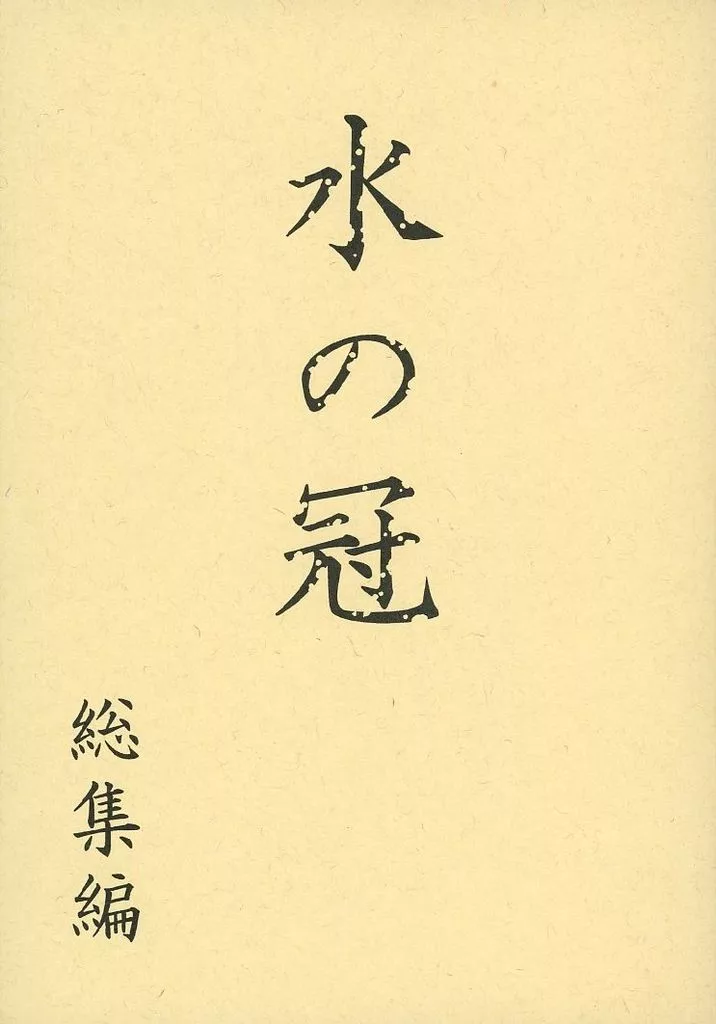 水の冠
総集編